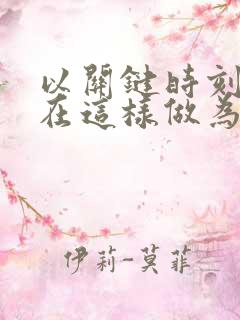 以關鍵時刻
在這樣做為
伊莉~莫菲